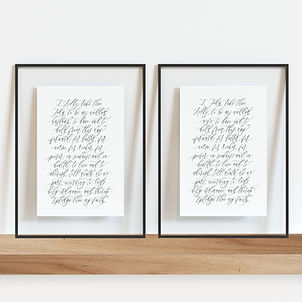 I, Holly, take thee
John, to be my wedded
husband, to have and to
hold, from this day
forward, for better, for
worse, for richer, for
poorer, in sickness and in
health, to love and to
cherish, till death do us
part, according to God's
holy ordinance, and thereto
I pledge thee my faith
I, John, take thee
Holly, to be my wedded
wife, to have and to
hold, from this day
forward, for better, for
worse, for richer, for
poorer, in sickness and in
health, to love and to
cherish, till death do us
part, according to God's
holy ordinance, and thereto
I pledge thee my faith